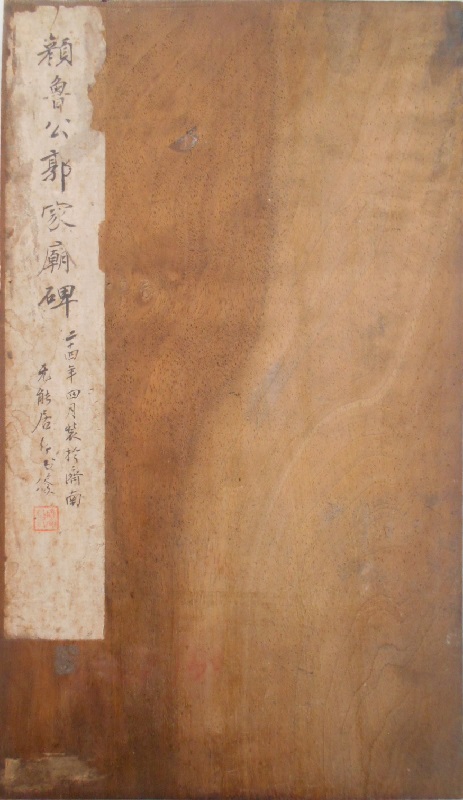 顔魯公郭家廟碑
二十四年四月裝於濟南
无能居